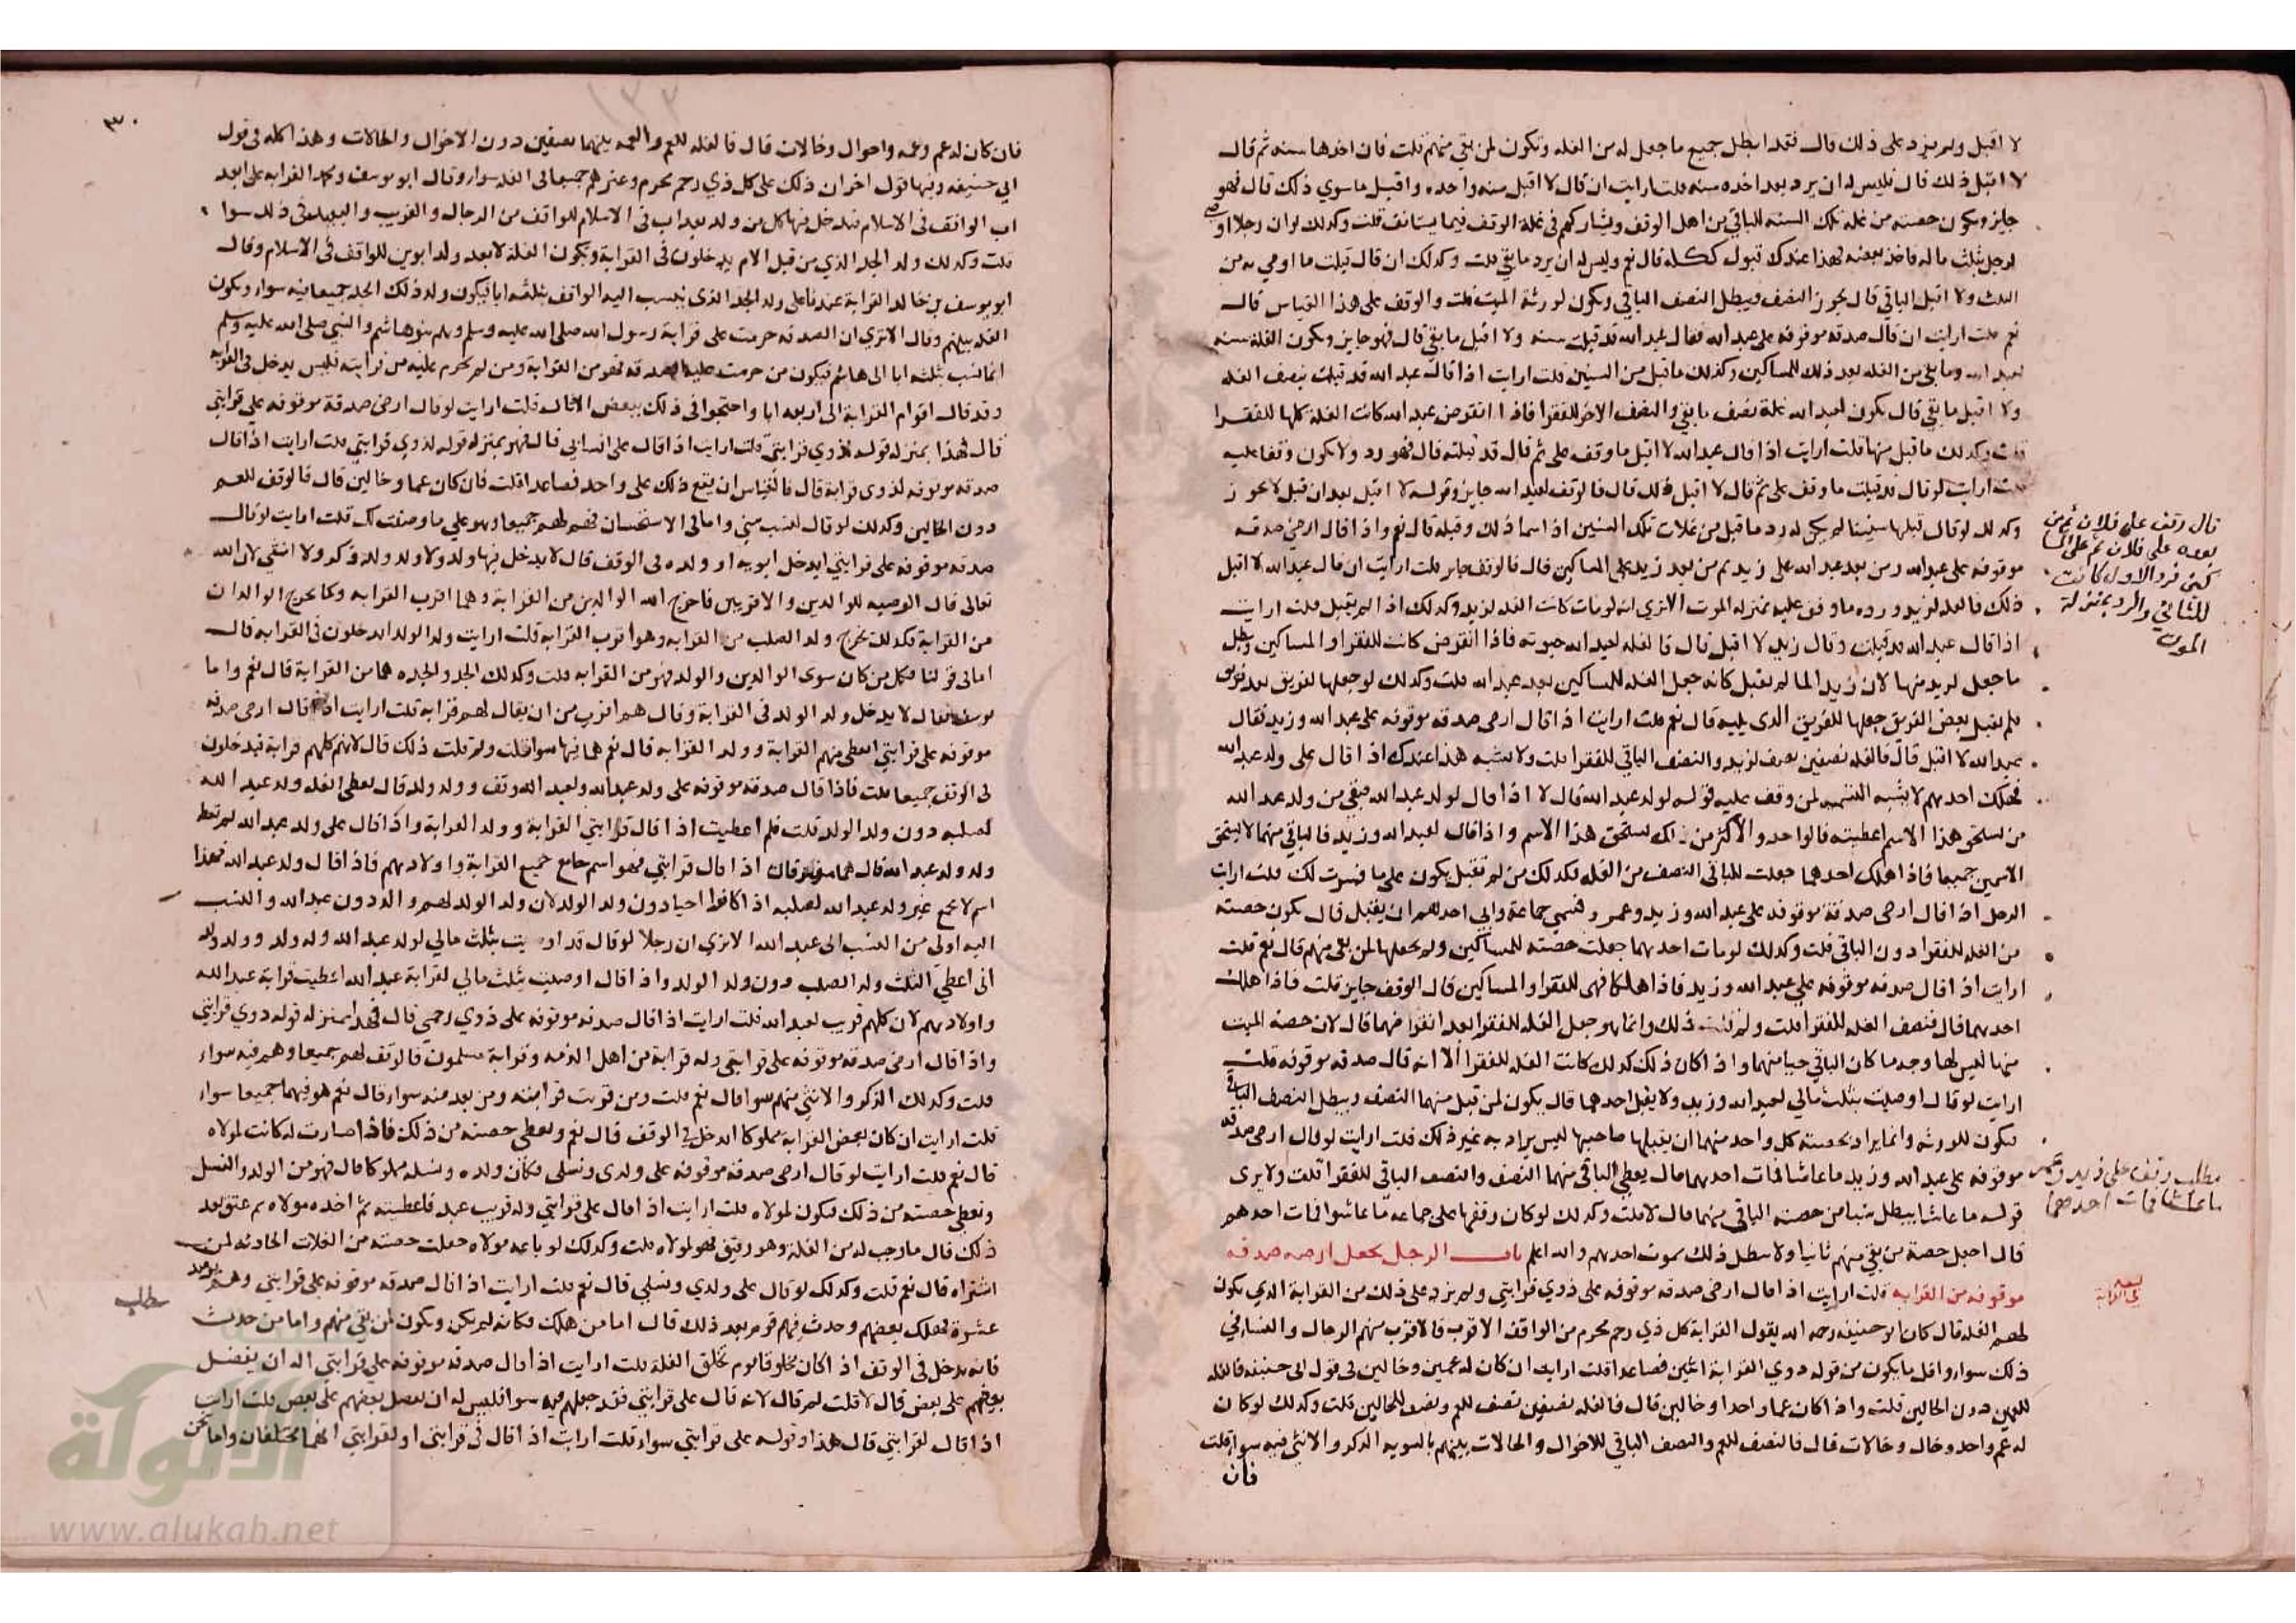 لا اقبل ولم يزد على ذلك قال فقد ابطل جميع ما جعل له من الغله ويكون لمن بقي منهم قلت فان اخذها سنه ثم قال
لا اقبل ذلك قال فليس له ان يرد بعد اخذه سنه قلت ارايت ان قال لا اقبل سنه واحده واقبل ما سوي ذلك قال فهو
جايز ويكون حصته من غله تلك السنه للباقي من اهل الوقف ويشاركهم في غلة الوقف فيما يستانف قلت وكذلك لو ان رجلا اوصى
لرجل بثلث ماله فاخذ بعضه فهذا عندك قبول كله قال نعم وليس له ان يرد ما بقي قلت وكذلك ان قال قبلت ما اوصي به من
الثلث ولا اقبل الباقي قال يجوز النصف ويبطل النصف الباقي ويكون لورثة الميت قلت والوقف على هذا القياس قال
نعم قلت ارايت ان قال صدقه موقوفه على عبد الله فقال عبد الله قد قبلت سنه ولا اقبل ما بقي قال فهو جايز ويكون الغلة سنه
لعبد الله وما بقي من الغله بعد ذلك للمساكين وكذلك ما قبل من السنين قلت ارايت اذا قال عبد الله قد قبلت نصف الغله
ولا اقبل ما بقي قال يكون لعبد الله غلة نصف ما بقي والنصف الاخر للفقرا فاذا انقرض عبد الله كانت الغلة كلها للفقرا
قلت وكذلك ما قبل منها قلت ارايت اذا قال عبد الله لا اقبل ما وقف علي ثم قال قد قبلته قال فهو رد ولا يكون وقفا عليه
قلت ارايت لو قال قد قبلت ما وقف علي ثم قال لا اقبل ذلك قال فالوقف لعبد الله جايز وقوله لا اقبل بعد ان قبل لا يجوز
وكذلك لو قال قبلها سنينا لم يكن له رد ما قبل من غلات تلك السنين اذا سما ذلك وقبله قال نعم واذا قال ارضي صدقه
موقوفه على عبد الله ومن بعد عبد الله على زيد ثم من بعد زيد على المساكين قال فالوقف جايز قلت ارايت ان قال عبد الله لا اقبل
ذلك فالغله لزيد ورده ما وقف عليه بمنزله الموت الا تري انه لو مات كانت الغله لزيد وكذلك اذا لم يقبل قلت ارايت
اذا قال عبد الله قد قبلت وقال زيد لا اقبل قال فالغله لعبد الله حيوته فاذا انقرض كانت للفقرا والمساكين وبطل
ما جعل لزيد منها لان زيد الما لم يقبل كانه جعل الغله للمساكين بعد عبد الله قلت وكذلك لو جعلها لفريق بعد فريق
فلم يقبل بعض الفريق جعلها للفريق الذي يليه قال نعم قلت ارايت اذا قال ارضي صدقه موقوفه على عبد الله وزيد فقال
عبد الله لا اقبل قال فالغله نصفين نصف لزيد والنصف الباقي للفقرا قلت ولا يشبه هذا عندك اذا قال على ولد عبد الله
فهلك احدهم لا يشبه التسميه لمن وقف عليه قوله لولد عبد الله قال لا اذا قال لولد عبد الله فبقي من ولد عبد الله
من يستحق هذا الاسم اعطيته فالواحد والاكثر من ذلك يستحق هذا الاسم واذا قال لعبد الله وزيد فالباقي منهما لا يستحق
الاسمين جميعا فاذا هلك احدهما جعلت للباقي النصف من الغله فكذلك من لم يقبل يكون على ما فسرت لك قلت ارايت
الرجل اذا قال ارضي صدقة موقوفه على عبد الله وزيد وعمر وسمي جماعة وابي احدهم ان يقبل قال يكون حصته
من الغله للفقرا دون الباقي قلت وكذلك لو مات احدهما جعلت حصته للمساكين ولم تجعلها لمن بقي منهم قال نعم قلت
ارايت اذا قال صدقه موقوفه على عبد الله وزيد فاذا هلكا فهي للفقرا والمساكين قال الوقف جايز قلت فاذا هلك
احدهما قال فنصف الغله للفقرا قلت ولم قلت ذلك وانما هو جعل الغله للفقرا بعد انقراضهما قال لان حصة الميت
منها ليس لها وجه ما كان الباقي حيا منهما واذا كان ذلك كذلك كانت الغله للفقرا الا انه قال صدقه موقوفه قلت
ارايت لو قال اوصيت بثلث مالي لعبد الله وزيد ولا يقبل احدهما قال يكون لمن قبل منهما النصف ويبطل النصف الباقي
فيكون للورثه وانما يراد بحصته كل واحد منهما ان يقبلها صاحبها ليس يراد به غير ذلك قلت ارايت لو قال ارضي صدقه
موقوفه على عبد الله وزيد ما عاشا فمات احدهما قال يعطي الباقي منهما النصف والنصف الباقي للفقرا قلت ولا يري
قوله ما عاشا يبطل شيا من حصته الباقي منهما قال لا قلت وكذلك لو كان وقفها على جماعه ما عاشوا فمات احدهم
قال اجعل حصة من بقي منهم ثابتا ولا يبطل ذلك بموت احدهم والله اعلم باب الرجل يجعل ارضه صدقه
موقوفه من القرابه قلت ارايت اذا قال ارضي صدقه موقوفه على ذوي قرابتي ولم يزد على ذلك من القرابة الذي يكون
لهم الغله قال كان ابو حنيفه رحمه الله يقول القرابة كل ذي رحم محرم من الواقف الاقرب فالاقرب منهم الرجال والنسا في
ذلك سوا واقل ما يكون من قوله ذوي القرابة اثنين فصاعدا قلت ارايت ان كان له عمين وخالين في قول ابي حنيفه فالغله
للعمين دون الخالين قلت واذا كان عما واحدا وخالين قال فالغله نصفين نصف للعم ونصف للخالين قلت وكذلك لو كان
له عم واحد وخال وخالات قال فالنصف للعم والنصف الباقي للاخوال والخالات بينهم بالسويه الذكر والانثي فيه سوا قلت
فان
قال وقف على فلان ثم من
بعده على فلان ثم على المساكين
فمن رد الاول كانت
للثاني والرد بمنزلة
الموت
مطلب وقف على زيد وعمر
ما عاشا فمات احدهما
٣٠
فان كان له عم وعمه واخوال وخالات قال فالغله للعم والعمه بينهما نصفين دون الاخوال والخالات وهذا كله في قول
ابي حنيفه وفيها قول اخر ان ذلك على كل ذي رحم محرم وغيرهم جميعا في الغله سوا وقال ابو يوسف ومحمد القرابه على ابعد
اب الواقف في الاسلام فيدخل فيها كل من ولد بعد اب في الاسلام للواقف من الرجال والقريب والبعيد في ذلك سوا
قلت وكذلك ولد الجد الذي من قبل الام يدخلون في القرابة ويكون الغلة لابعد ولد ابوين للواقف في الاسلام وقال
ابو يوسف بن خالد القرابة عندنا على ولد الجد الذي ينسب اليه الواقف بثلثه ابا فيكون ولد ذلك الجد جميعا فيه سوا ويكون
الغله بينهم وقال الا تري ان الصدقه حرمت على قرابة رسول الله صلى الله عليه وسلم وهم بنو هاشم والنبي صلى الله عليه وسلم
انما نسب ثلثه ابا الى هاشم فيكون من حرمت عليه الصدقه فهو من القرابة ومن لم يحرم عليه من قرابته فليس يدخل في القرابه
وقد قال اقوام القرابة الى اربعه ابا واحتجوا في ذلك ببعض الاثار قلت ارايت لو قال ارضي صدقة موقوفه على قرابتي
قال فهذا بمنزله قوله لذوي قرابتي قلت ارايت اذا قال على انسابي قال فهو بمنزله قوله لذوي قرابتي قلت ارايت اذا قال
صدقه موقوفه لذوي قرابة قال فالقياس ان يقع ذلك على واحد فصاعدا قلت فان كان عما وخالين قال فالوقف للعم
دون الخالين وكذلك لو قال لنسب مني واما في الاستحسان فهو لهم جميعا وهو على ما وصفت لك قلت ارايت لو قال
صدقه موقوفه على قرابتي ايدخل ابويه او ولده في الوقف قال لا يدخل فيها والد ولا ولد ولد ذكر ولا انثي لان الله
تعالى قال الوصيه للوالدين والاقربين فاخرج الله الوالدين من القرابة وهما اقرب القرابه وكما يخرج الوالدان
من القرابة فكذلك يخرج ولد الصلب من القرابه وهو اقرب القرابة قلت ارايت ولد الولد ايدخلون في القرابه قال
اما في قولنا فكل من كان سوى الوالدين والولد فهو من القرابه قلت وكذلك الجد والجده هما من القرابة قال نعم واما
يوسف فقال لا يدخل ولد الولد في القرابة وقال هم اقرب من ان يقال لهم قرابة قلت ارايت اذا قال ارضي صدقه
موقوفه على قرابتي ايعطي منهم القرابة وولد القرابه قال نعم هما فيها سوا قلت ولم قلت ذلك قال لانهم كلهم قرابة فيدخلون
في الوقف جميعا قلت فاذا قال صدقه موقوفه على ولد عبد الله ولعبد الله ولد وولد ولد قال يعطي الغله ولد عبد الله
لصلبه دون ولد الولد قلت فلم اعطيت اذا قال قرابتي القرابة وولد القرابة واذا قال على ولد عبد الله لم تعط
ولد ولد عبد الله قال هما مفترقان اذا قال قرابتي فهو اسم جامع جميع القرابة واولادهم فاذا قال ولد عبد الله فهذا
اسم لا يجمع غير ولد عبد الله لصلبه اذا كانوا احيا دون ولد الولد لان ولد الولد لهم والد دون عبد الله والنسب
اليه اولى من النسب الى عبد الله الا تري ان رجلا لو قال قد اوصيت بثلث مالي لولد عبد الله وله ولد وولد ولد
اني اعطي الثلث ولد الصلب دون ولد الولد واذا قال اوصيت بثلث مالي لقرابة عبد الله اعطيت قرابة عبد الله
واولادهم لان كلهم قريب لعبد الله قلت ارايت اذا قال صدقه موقوفه على ذوي رحمي قال فهذا بمنزله قوله ذوي قرابتي
واذا قال ارضي صدقه موقوفه على قرابتي وله قرابة من اهل الذمه وقرابة مسلمون قال وقف لهم جميعا وهم فيه سوا
قلت وكذلك الذكر والانثي منهم سوا قال نعم قلت ومن قربت قرابته ومن بعد منه سوا قال نعم هو فيهما جميعا سوا
قلت ارايت ان كان بعض القرابة مملوكا ايدخل في الوقف قال نعم ويعطي حصته من ذلك فاذا صارت له كانت لمولاه
قال نعم قلت ارايت لو قال ارضي صدقه موقوفه على ولدي ونسلي فكان ولده ونسله مملوكا قال فهو من الولد والنسل
ويعطى حصته من ذلك فيكون لمولاه قلت ارايت اذا قال على قرابتي وله قريب عبد فاعطيته ثم اخذه مولاه ثم عتق بعد
ذلك قال ما وجب له من الغلة وهو رقيق فهو لمولاه قلت وكذلك لو باعه مولاه جعلت حصته من الغلات الحادثه لمن
اشتراه قال نعم قلت وكذلك لو قال على ولدي ونسلي قال نعم قلت ارايت اذا قال صدقه موقوفه على قرابتي وهم يوميذ
عشرة فهلك بعضهم وحدث فيهم قوم بعد ذلك قال اما من هلك فكانه لم يكن ويكون لمن بقي منهم واما من حدث
فانه يدخل في الوقف اذا كان مخلوقا يوم تخلق الغلة قلت ارايت اذا قال صدقه موقوفه على قرابتي اله ان يفضل
بعضهم على بعض قال لا قلت لم قال لانه قال على قرابتي فقد جعلهم فيه سوا فليس له ان يفضل بعضهم على بعض قلت ارايت
اذا قال لقرابتي قال هذا وقوله على قرابتي سوا قلت ارايت اذا قال في قرابتي او لقرابتي انهما مختلفان واما نحن
مطلب
الألوكة
www.alukah.net